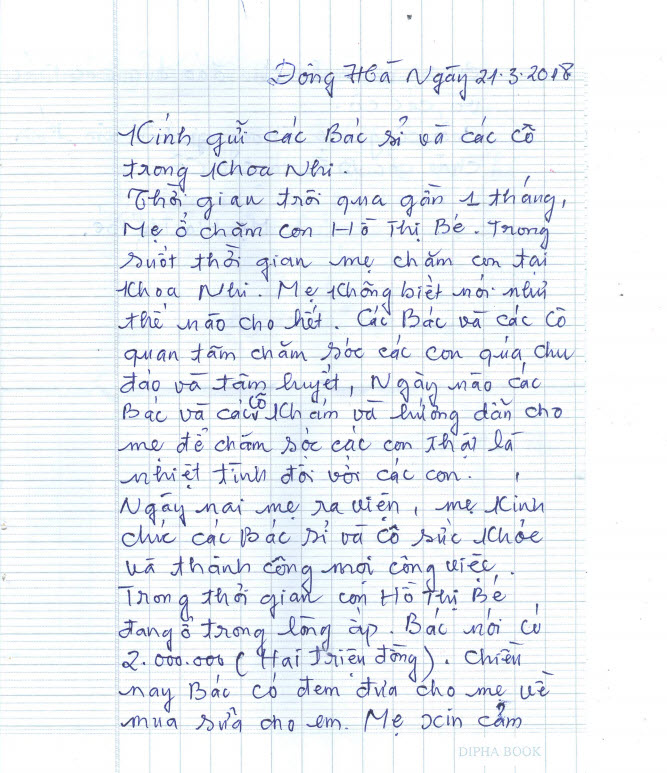 Đông Hà Ngày 21.3.2018
Kính gửi các Bác sỉ và các cô
trong Khoa Nhi.
Thời gian trôi qua gần 1 tháng,
Mẹ ở chăm con Hồ Thị Bé. Trong
suốt thời gian mẹ chăm con tại
Khoa Nhi. Mẹ không biết nói như
thế nào cho hết. Các Bác và các cô
quan tâm chăm sóc các con quá chu
đáo và tâm huyết, Ngày nào các
Bác và các cô khám và hướng dẫn cho
mẹ để chăm sóc các con thật là
nhiệt tình đối với các con.
Ngày nai mẹ ra viện, mẹ kính
chúc các Bác sỉ và cô sức khỏe
và thành công mọi công việc.
Trong thời gian con Hồ Thị Bé
đang ở trong lồng ấp. Bác nói có
2.000.000 (Hai triệu đồng). Chiều
nay Bác có đem đưa cho mẹ về
mua sữa cho em. Mẹ xin cảm
DIPHA BOOK